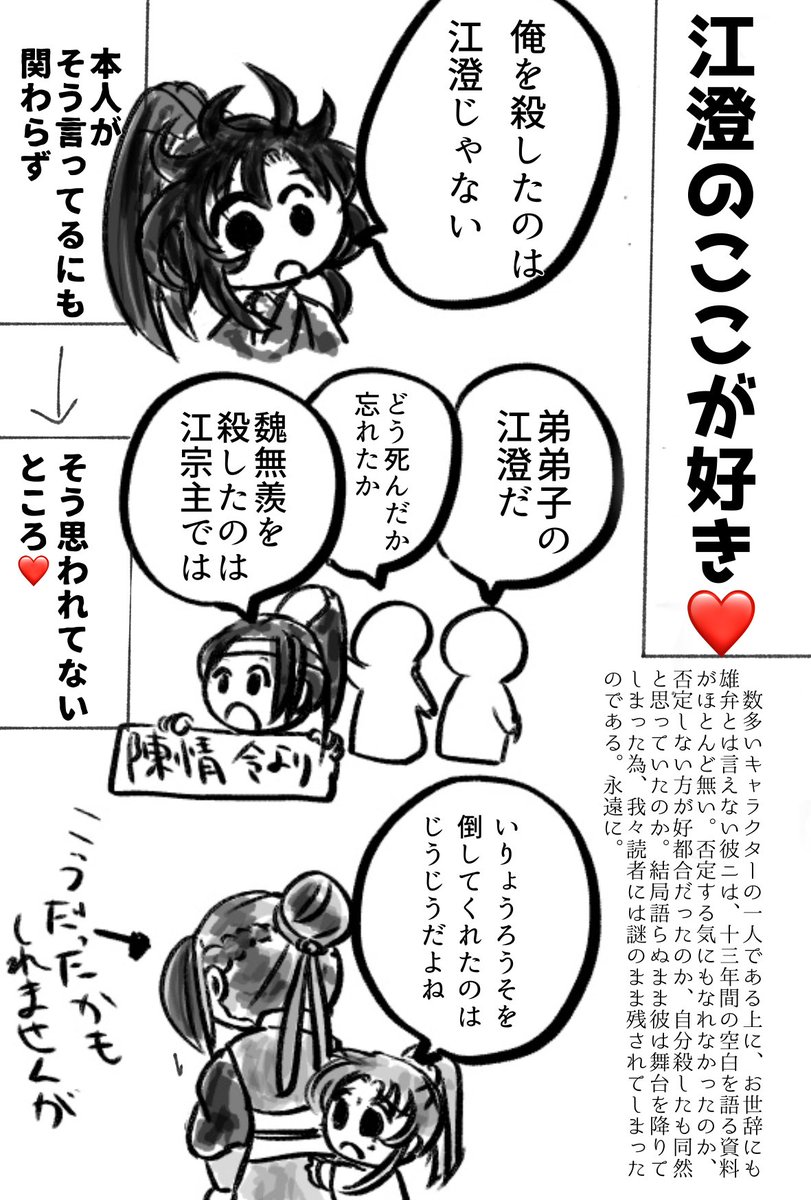 江澄のここが好き❤️
俺を殺したのは
江澄じゃない
本人が
そう言ってるにも
関わらず
弟弟子の
江澄だ
どう死んだか
忘れたか
魏無羨を
殺したのは
江宗主では
陳情令より
そう思われてない
ところ❤️
数多いキャラクターの一人である上に、お世辞にも
雄弁とは言えない彼ニは、十三年間の空白を語る資料
がほとんど無い。否定する気にもなれなかったのか、
否定しない方が好都合だったのか、自分殺したも同然
と思っていたのか。結局語らぬまま彼は舞台を降りて
しまった為、我々読者には謎のまま残されてしまった
のである。永遠に。
いりょうろうそを
倒してくれたのは
じうじうだよね
こうだったかも
しれませんが